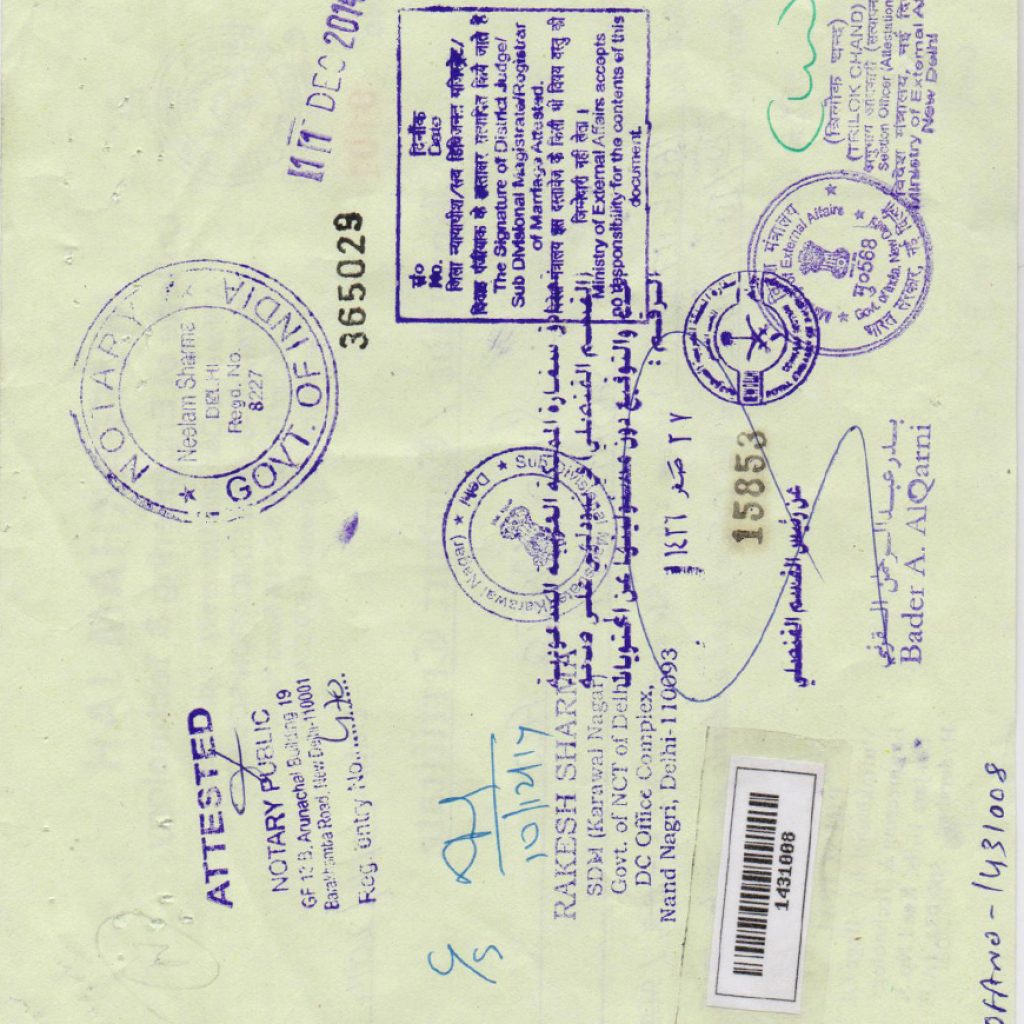 NOTARY
GOVT. OF INDIA
Neelam Sharma
DELHI
Regd. No.
8227
ATTESTED
NOTARY PUBLIC
GF 13 B, Arunachal Building 19
Barakhamba Road, New Delhi-110001
Reg. entry No.
11 DEC
365029
सं०
No.
दिनाँक
Date
जिला न्यायाधीश/सब डिविजनल मजिस्ट्रेट/
विवाह पंजीयक के हस्ताक्षर सत्यापित किये जाते हैं
The Signature of District Judge/
Sub Divisional Magistrate/Registrar
of Marriage Attested.
मंत्रालय इस दस्तावेज के किसी भी विषय वस्तु की
जिम्मेवारी नहीं लेता।
Ministry of External Affairs accepts
no responsibility for the contents of this
document.
Sub Divisional Magistrate
(Karawal Nagar) ★ Delhi ★
10/12/14
RAKESH SHARMA
SDM (Karawal Nagar)
Govt. of NCT of Delhi
DC Office Complex,
Nand Nagri, Delhi-110093
الرقم:
٢٧ صفر ١٤٣٦
15853
عن رئيس القسم القنصلي
بدر عبد الرحمن القرني
Bader A. AlQarni
(त्रिलोक चन्द)
(TRILOK CHAND)
अनुभाग अधिकारी (सत्यापन
Section Officer (Attestation
विदेश मंत्रालय, नई दि
Ministry of External A
New Delhi
मंत्रालय
of External Affairs
मु०568
Govt. of India, New Delhi
भारत सरकार, नई दिल्ली
1431008
1431008